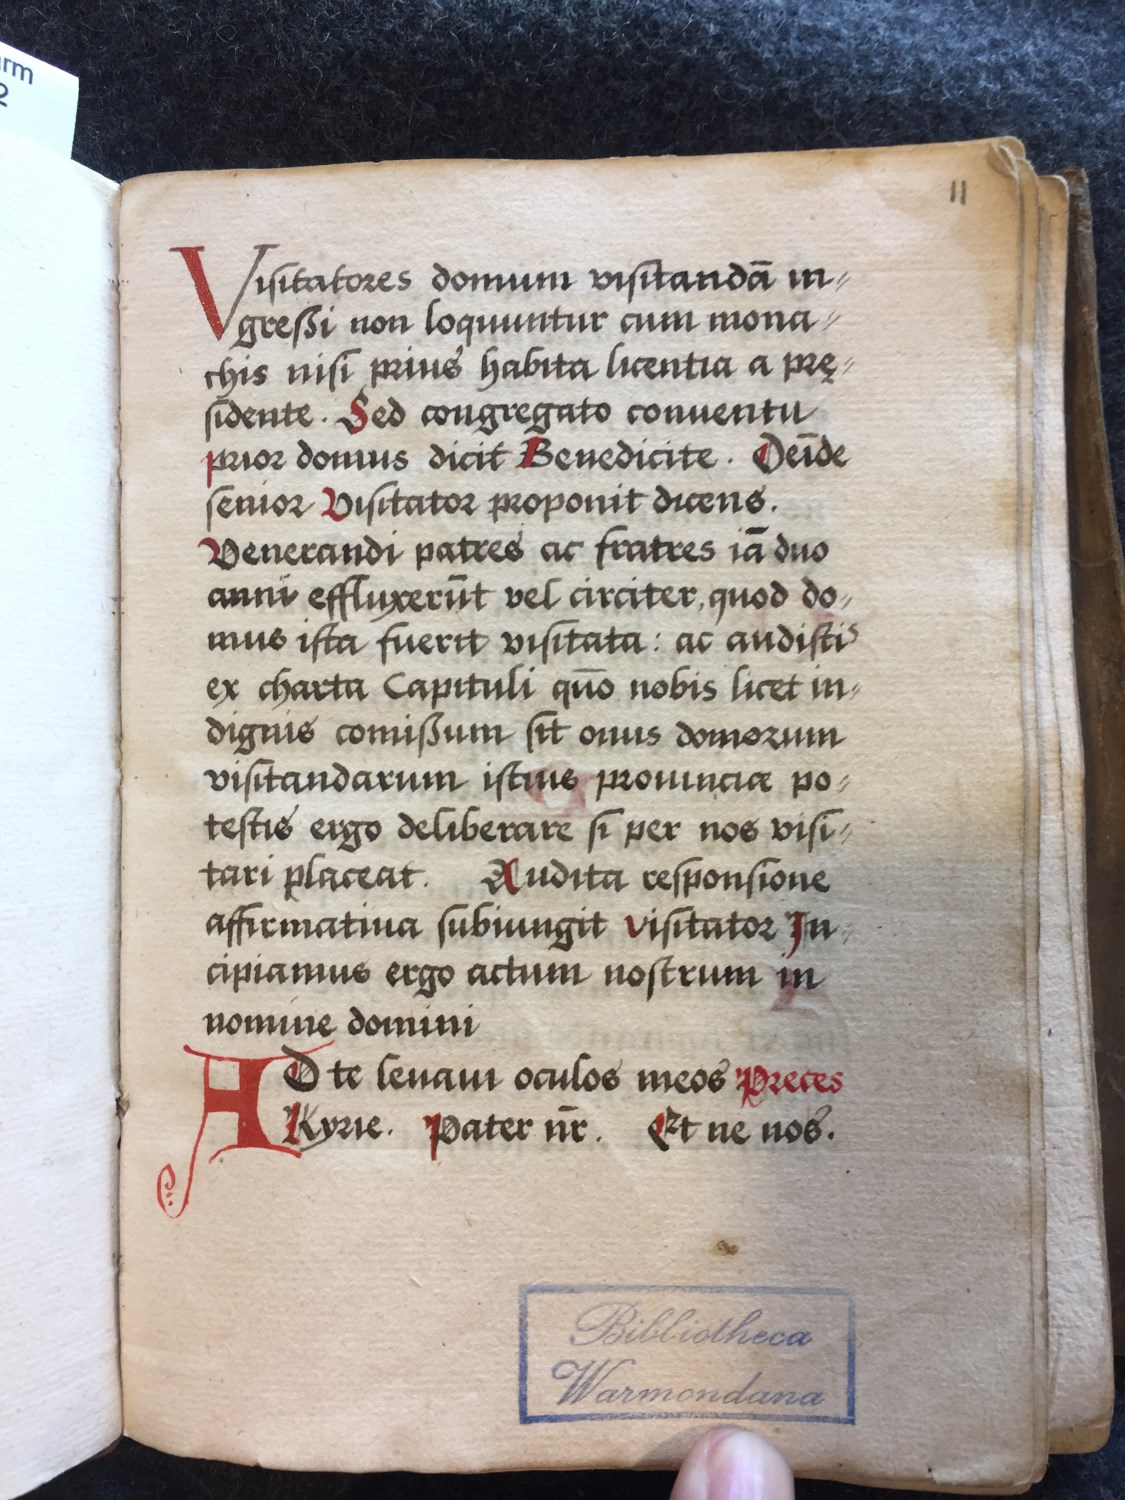 arm
2
11
Visitatores domum visitandā in⸗
greßi non loquuntur cum mona⸗
chis nisi prius habita licentia a prę⸗
sidente. Sed congregato conuentu
prior domus dicit Benedicite. Deīde
senior Visitator proponit dicens.
Venerandi patres ac fratres iā duo
anni effluxerūt vel circiter, quod do⸗
mus ista fuerit visitata: ac audistis
ex charta Capituli quō nobis licet in⸗
dignis comißum sit onus domorum
visitandarum istius prouinciæ po⸗
testis ergo deliberare si per nos visi⸗
tari placeat. Audita responsione
affirmatiua subiungit visitator In⸗
cipiamus ergo actum nostrum in
nomine domini
AD te leuaui oculos meos Preces
Kyrie. Pater nr̄. Et ne nos.
Bibliotheca
Warmondana